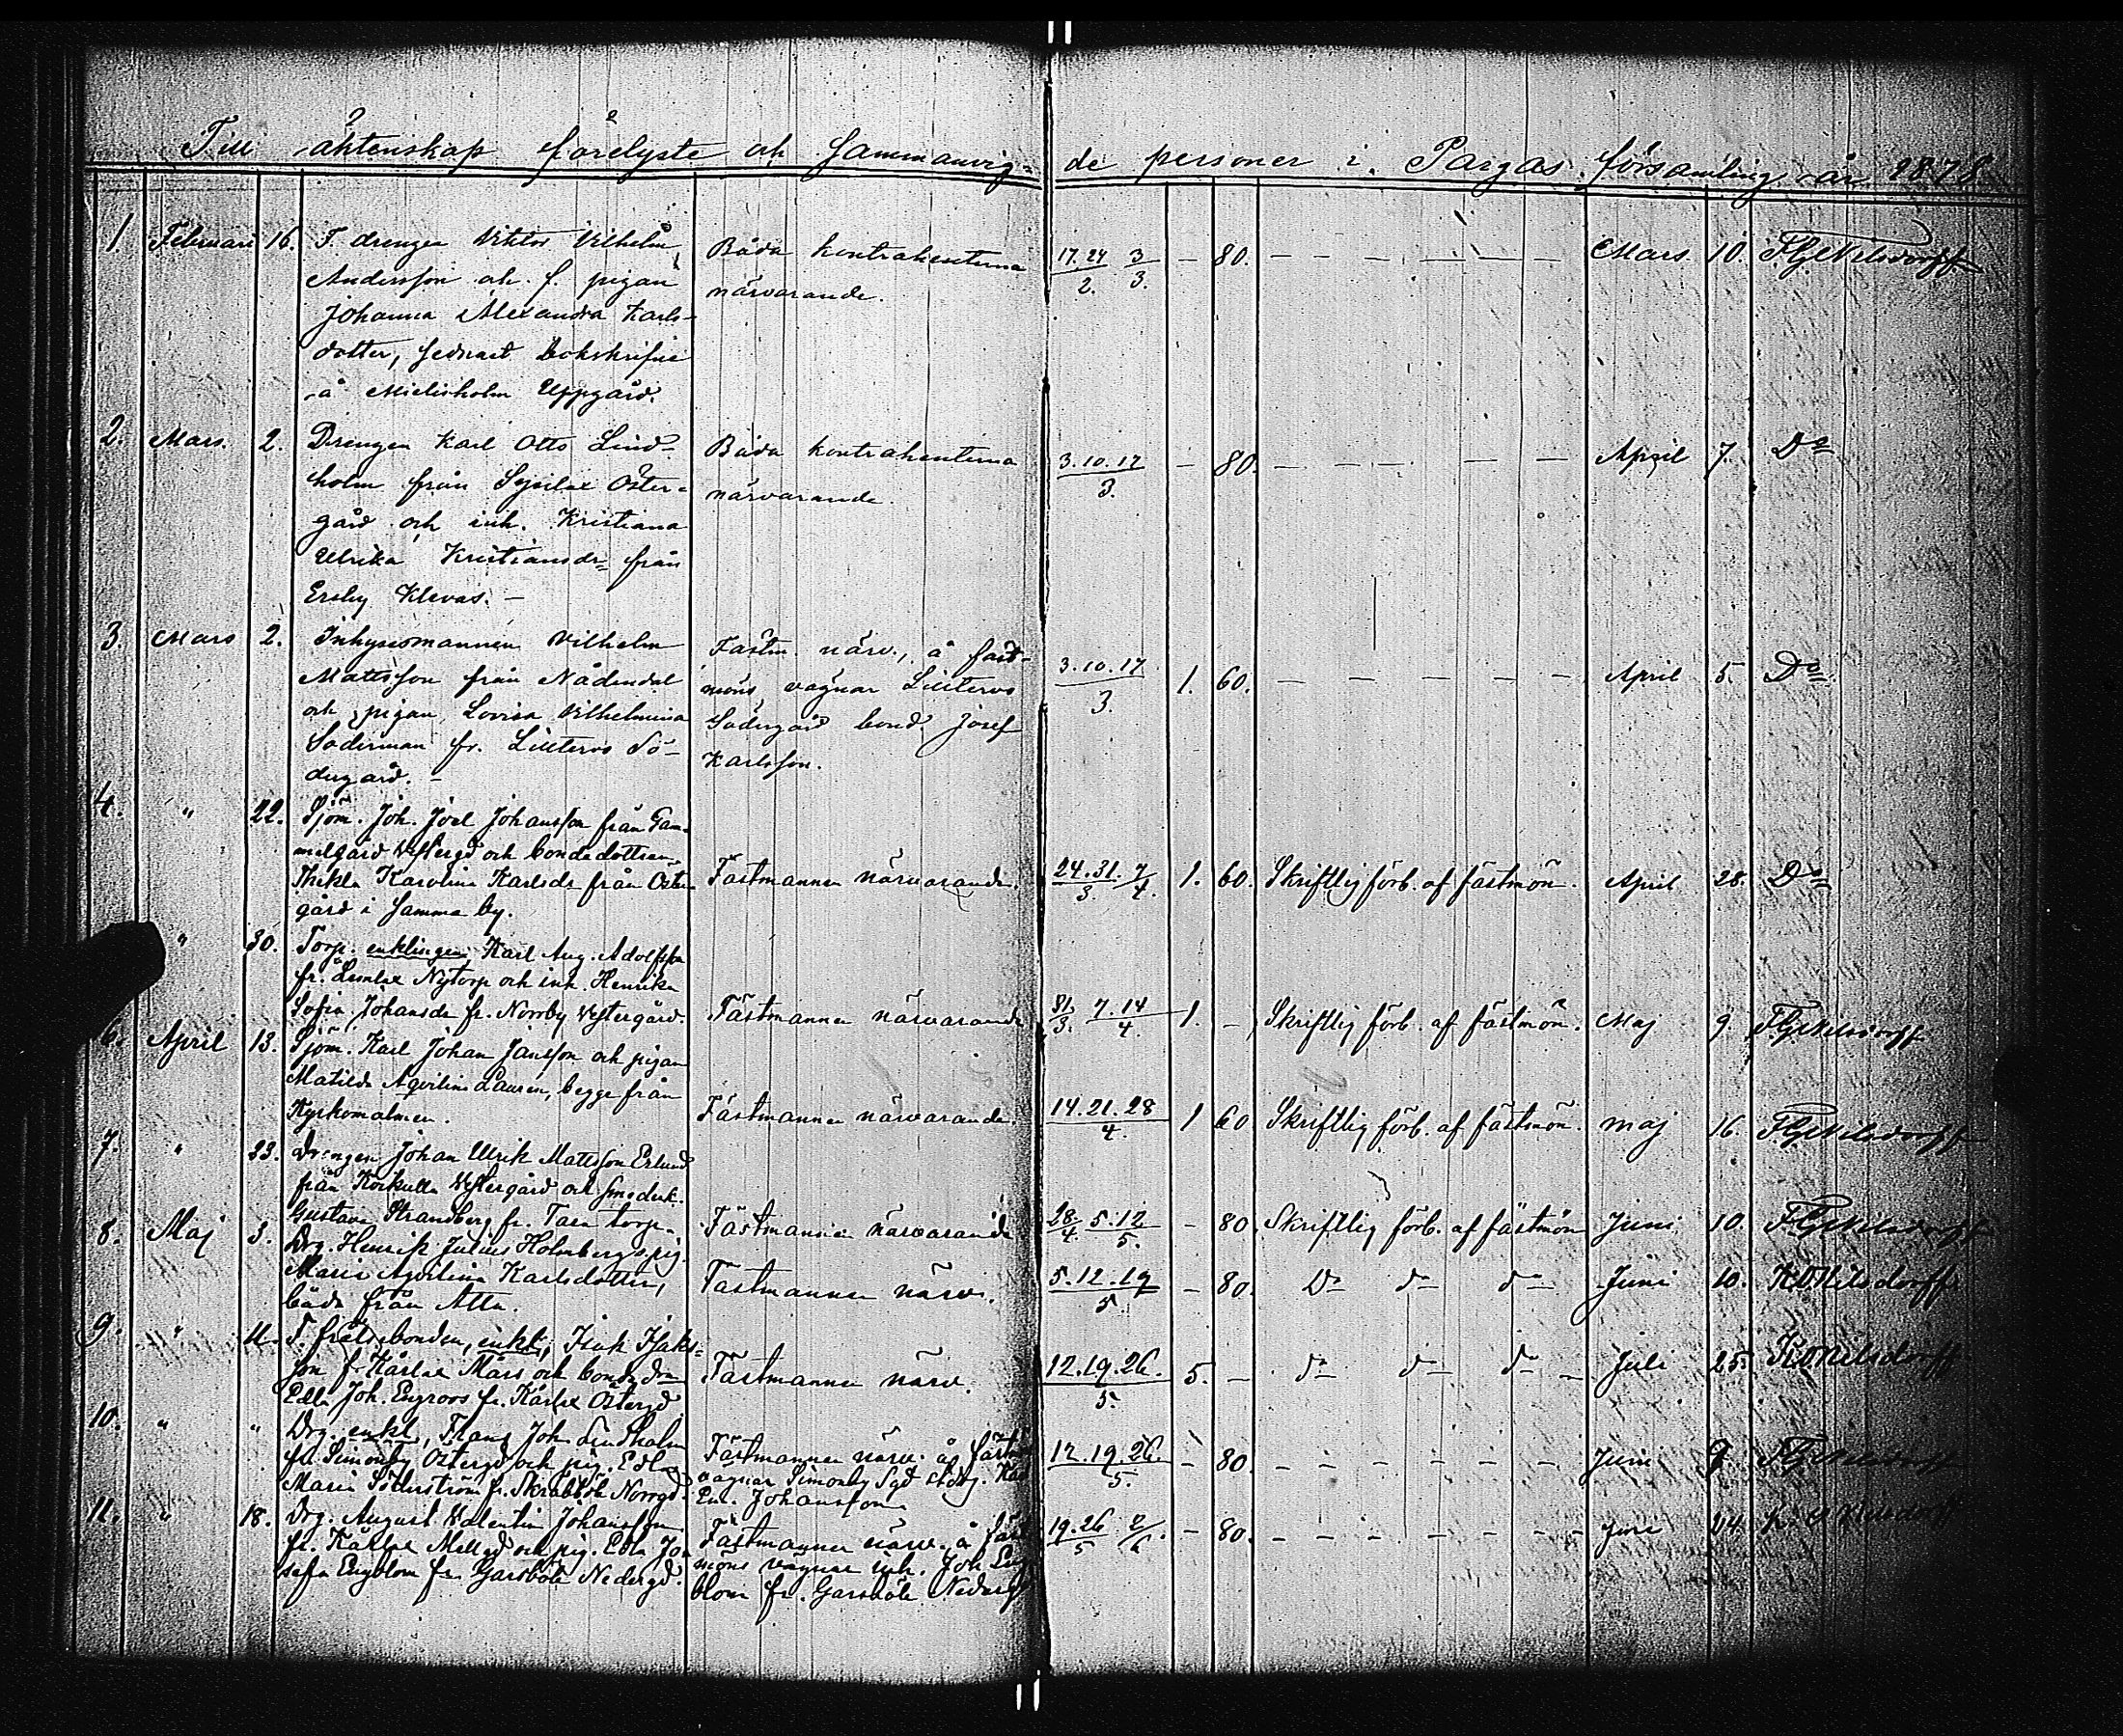 Till äktenskap förelyste och Sammanvig-
de personer i Pargas församling år 1878
1. Februari 16. F. drengen Viktor Vilhelm
Andersson och f. pigan
Johanna Alexandra Karls-
dotter, sednast bokskrifne
å Mielisholm Uppgård.
Båda kontrahenterna
närvarande.
17.24/2. 3/3. — 80. — — — — — — Mars 10.
2. Mars. 2. Drengen Karl Otto Lind-
holm från Sysilax Öster-
gård och inh. Kristiana
Ulrika Kristiansdr från
Ersby Klevas. —
Båda kontrahenterna
närvarande.
3.10.17/3. — 80. — — — — — April 7. Do
3. Mars 2. Inhysesmannen Vilhelm
Mattsson från Nådendal
och pigan Lovisa Vilhelmina
Söderman fr. Lilltervo Sö-
dergård. —
Fästm. närv., å fäst-
möns vägnar Lilltervo
Södergård bond. Josef
Karlsson.
3.10.17/3. 1. 60. — — — — — — April 5. Do
4. " 22. Sjöm. Joh. Joel Johansson från Gam-
melgård Vestergd och bondedottren
Thekla Karolina Karlsdr från Öster-
gård i samma by.
Fästmannen närvarande.
24.31./3. 7/4. 1. 60. Skriftlig förb. af fästmön. April 28. Do
" 30. Torp. enklingen Karl Aug. Adolfsson
fr. Nytorp och inh. Henrika
Sofia Johansdr fr. Norrby Vestergård.
Fästmannen närvarande
31/3. 7.14/4. 1. — Skriftlig förb. af fästmön. Maj 9.
6. April 13. Sjöm. Karl Johan Jansson och pigan
Matilda Aqvilina Lauren, begge från
Kyrkomalmen.
Fästmannen närvarande.
14.21.28/4. 1 60 Skriftlig förb. af fästmön. maj 16.
7. " 23. Drengen Johan Ulrik Mattsson Erlund
från Korkulla Vestergård och
Gustava Strandberg fr. torp.
Fästmannen närvarande
28/4. 5.12/5. — 80. Skriftlig förb. af fästmön Juni 10.
8. Maj 3. Drg. Henrik Julius Holmberg o. pig.
Maria Aqvilina Karlsdotter,
båda från Attu.
Fästmannen närv.
5.12.19/5. — 80. Do do do Juni 10. Nilsdorff
9. " 11. F. frälsebonden, enkl. Isak Isaks-
son f. Kårlax Mårs och bondedrn
Edla Joh. Engroos fr. Kårlax Östergd.
Fästmannen närv.
12.19.26./5. 5. — do do do — Juli 25. Nilsdorff
10. " " Drg. enkl., Frans Joh. Lindholm
fr. Simonby Östergd och pig. Edla
Maria Söderström fr. Skräbböle Norrgd.
Fästmannen närv. å fästm
vägnar Simonby Sgd
Em. Johansson
12.19.26./5. — 80. — — — — — — Juni 9
11. " 18. Drg. August Valentin Johansson
fr. Kårlax Mellgd och pig. Edla Jo-
sefa Engblom fr. Garsböle Nedergd.
Fästmannen närv. å fäst
möns vägnar inh. Joh. Eng
blom fr. Garsböle Nedergd
19.26/5 2/6. — 80. — — — — — — Juni 24.